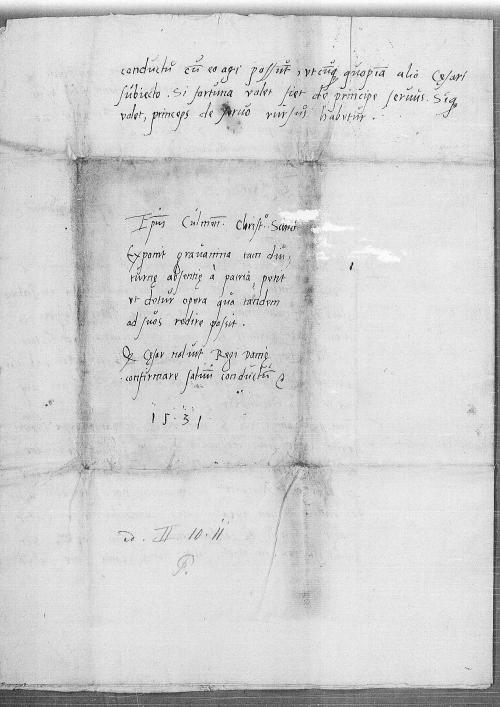 conductū cū eo agi possūt, vtcūq quopiā alio Cęsari
subiecto. Si fortuna volet fiet de principe seruus. Siq
volet, princeps de seruo rursus habetur.
Ep̄us Culmen. Christo.
Exponit grauamina tam diu,
turnę absentię à patria, petit
vt detur opera quo tandem
ad suos redire possit.
Cęsar noluit Regi Danię
confirmare saluū conductū
1531
II 10 II